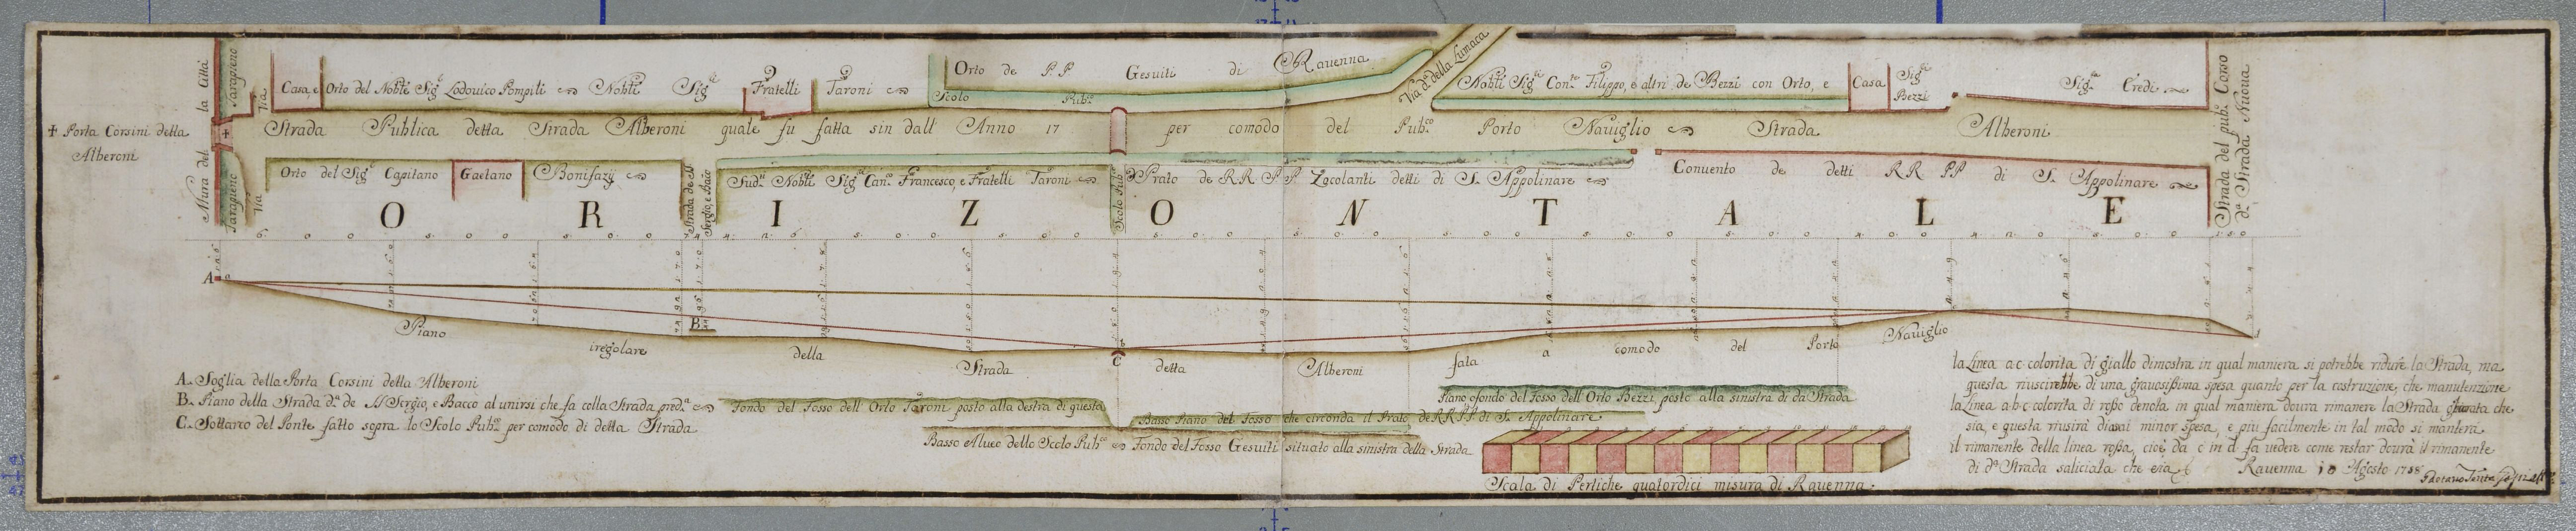 ✝ Porta Corsini detta
Alberoni
Mura del la Città
Tarapieno
Tarapieno
Via
Via
Casa, e Orto del Nob:le Sig:r Lodovico Pompili e Nobli Sig:ri Fratelli Taroni
Orto de P.P Gesuiti di Ravenna
Scolo Pub:co
Via d:a della Lumaca
Nobli Sig:ri Con:te Filippo, e altri de Bezzi con Orto, e Casa
Sig:ri
Bezzi
Sig:ra Credi
Strada Publica detta Strada Alberoni quale fu fatta sin dall Anno 17 per comodo del Pub:co Porto Naviglio Strada Alberoni
Orto del Sig:r Capitano Gaetano Bonifazij
Strada de S
Sergio, e Baco
Sud:i Nobli Sig:ri Can:co Francesco, e Fratelli Taroni
Scolo Pub:co
Prato de R R P P Zocolanti detti di S. Appolinare
Convento de detti R R P P di S. Appolinare
Strada del pub:o Corso
d:a Strada Nuova
O R I Z O N T A L E
A
B
C
Piano iregolare della Strada detta Alberoni fata a comodo del Porto Naviglio
A. Soglia della Porta Corsini detta Alberoni
B. Piano della Strada d:a de SS Sergio, e Bacco al unirsi che fa colla Strada pred:a
C. Sottarco del Ponte fatto sopra lo Scolo Pub:co per comodo di detta Strada
Fondo del Fosso dell Orto Taroni posto alla destra di questa
Basso Piano del Fosso che circonda il Prato de R R P P di S. Appolinare
Basso Alveo dello Scolo Pub:co
Fondo del Fosso Gesuiti situato alla sinistra della Strada
Piano ofondo del Fosso dell Orto Bezzi, posto alla sinistra di da Strada
Scala di Pertiche quatordici misura di Ravenna
la Linea a c colorita di giallo dimostra in qual maniera si potrebbe ridure la Strada, ma
questa riuscirebbe di una gravosissima spesa quanto per la costruzione, che manutenzione
la Linea a b c colorita di rosso denota in qual maniera dovra rimanere la Strada che
sia, e questa riusirà di minor spesa, e piu facilmente in tal modo si manterà
il rimanente della linea rossa, cioè da c in d fa vedere come restar dovrà il rimanente
di d:a Strada saliciata che sia
Ravenna 10 Agosto 1758